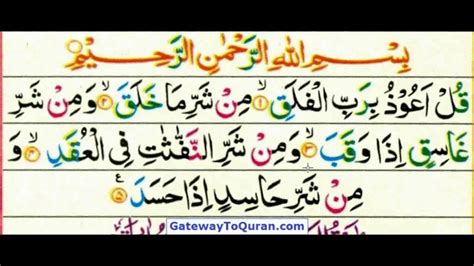 بِسْمِ اللهِ الرَّحْمٰنِ الرَّحِيْمِ
قُلْ اَعُوْذُ بِرَبِّ الْفَلَقِ ۙ﴿۱﴾ مِنْ شَرِّ مَا خَلَقَ ۙ﴿۲﴾ وَمِنْ شَرِّ
غَاسِقٍ اِذَا وَقَبَ ۙ﴿۳﴾ وَمِنْ شَرِّ النَّفّٰثٰتِ فِى الْعُقَدِ ۙ﴿۴﴾ وَ
مِنْ شَرِّ حَاسِدٍ اِذَا حَسَدَ ﴿۵﴾
GatewayToQuran.com